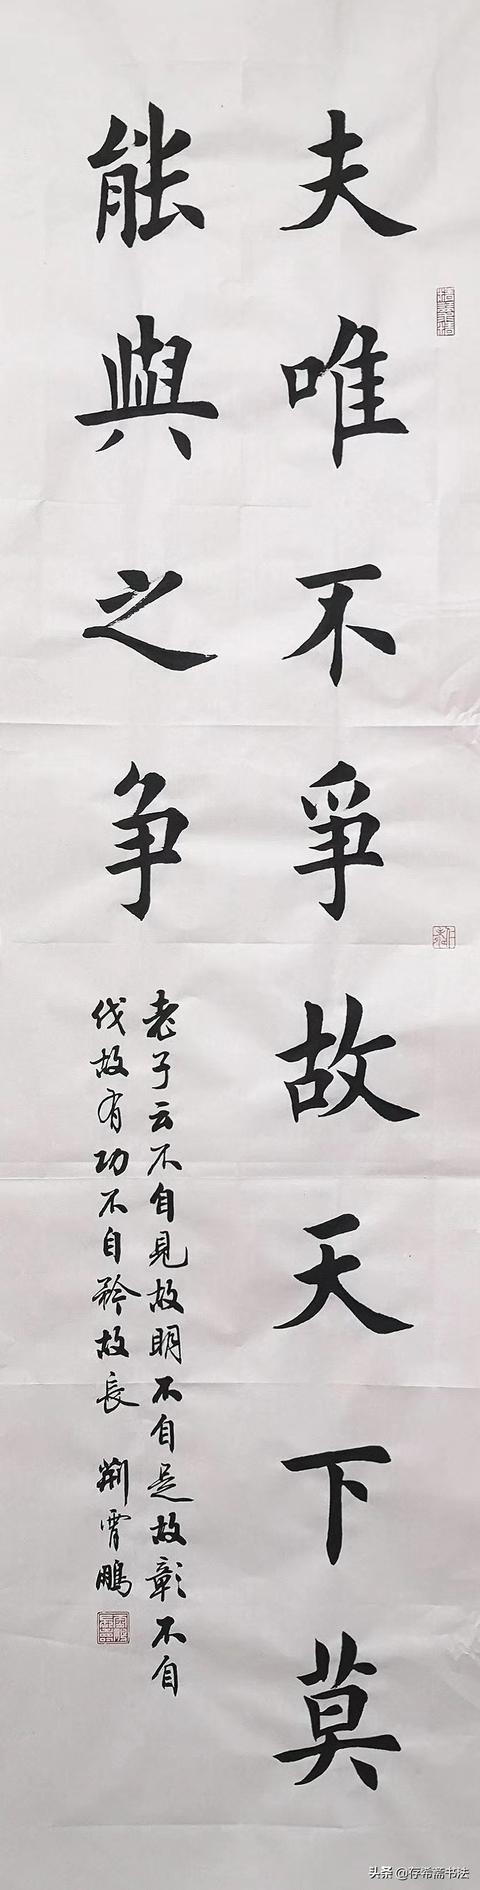 夫唯不爭故天下莫
能與之争
老子云不自見故明不自是故彰不自
伐故有功不自矜故長 荆霄鵬
头条 @存希斋书法